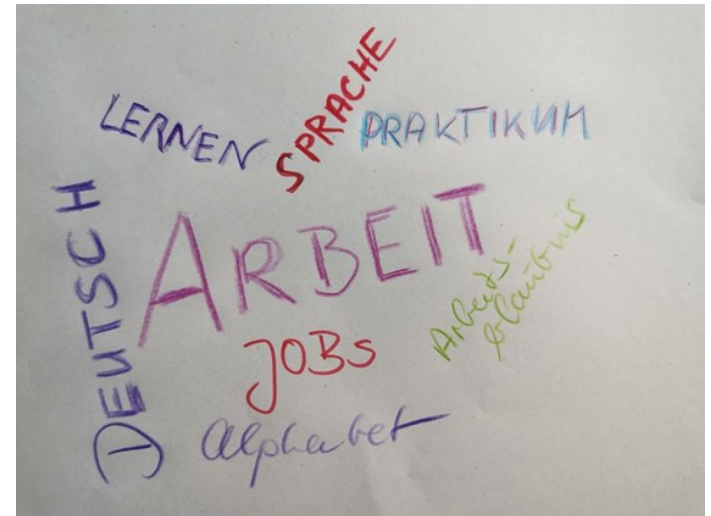 SPRACHE
LERNEN
PRAKTIKUM
DEUTSCH
ARBEIT
Arbeits-
erlaubnis
JOBS
Alphabet